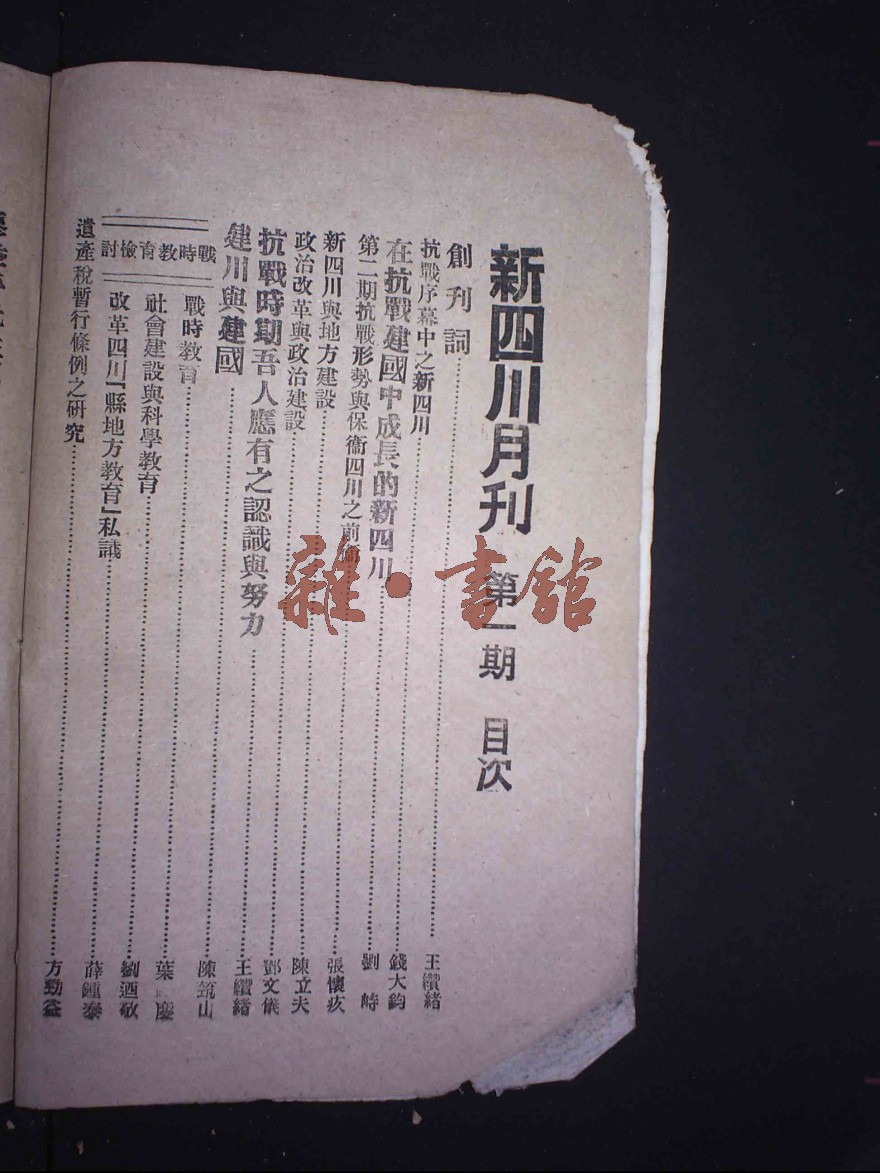 新四川月刊 第一期 目次
創刊詞……王纘緒
抗戰序幕中之新四川……錢大鈞
在抗戰建國中成長的新四川……劉峙
第二期抗戰形勢與保衞四川之前……張懷
新四川與地方建設……陳立夫
政治改革與政治建設……鄧文儀
抗戰時期吾人應有之認識與努力……王纘緒
建川與建國……陳筑山
戰時教育檢討
戰時教育……葉 慶
社會建設與科學教育……劉迺敬
改革四川「縣地方教育」私議……薛鍾泰
遺產稅暫行條例之研究……方勁益
雜·書館